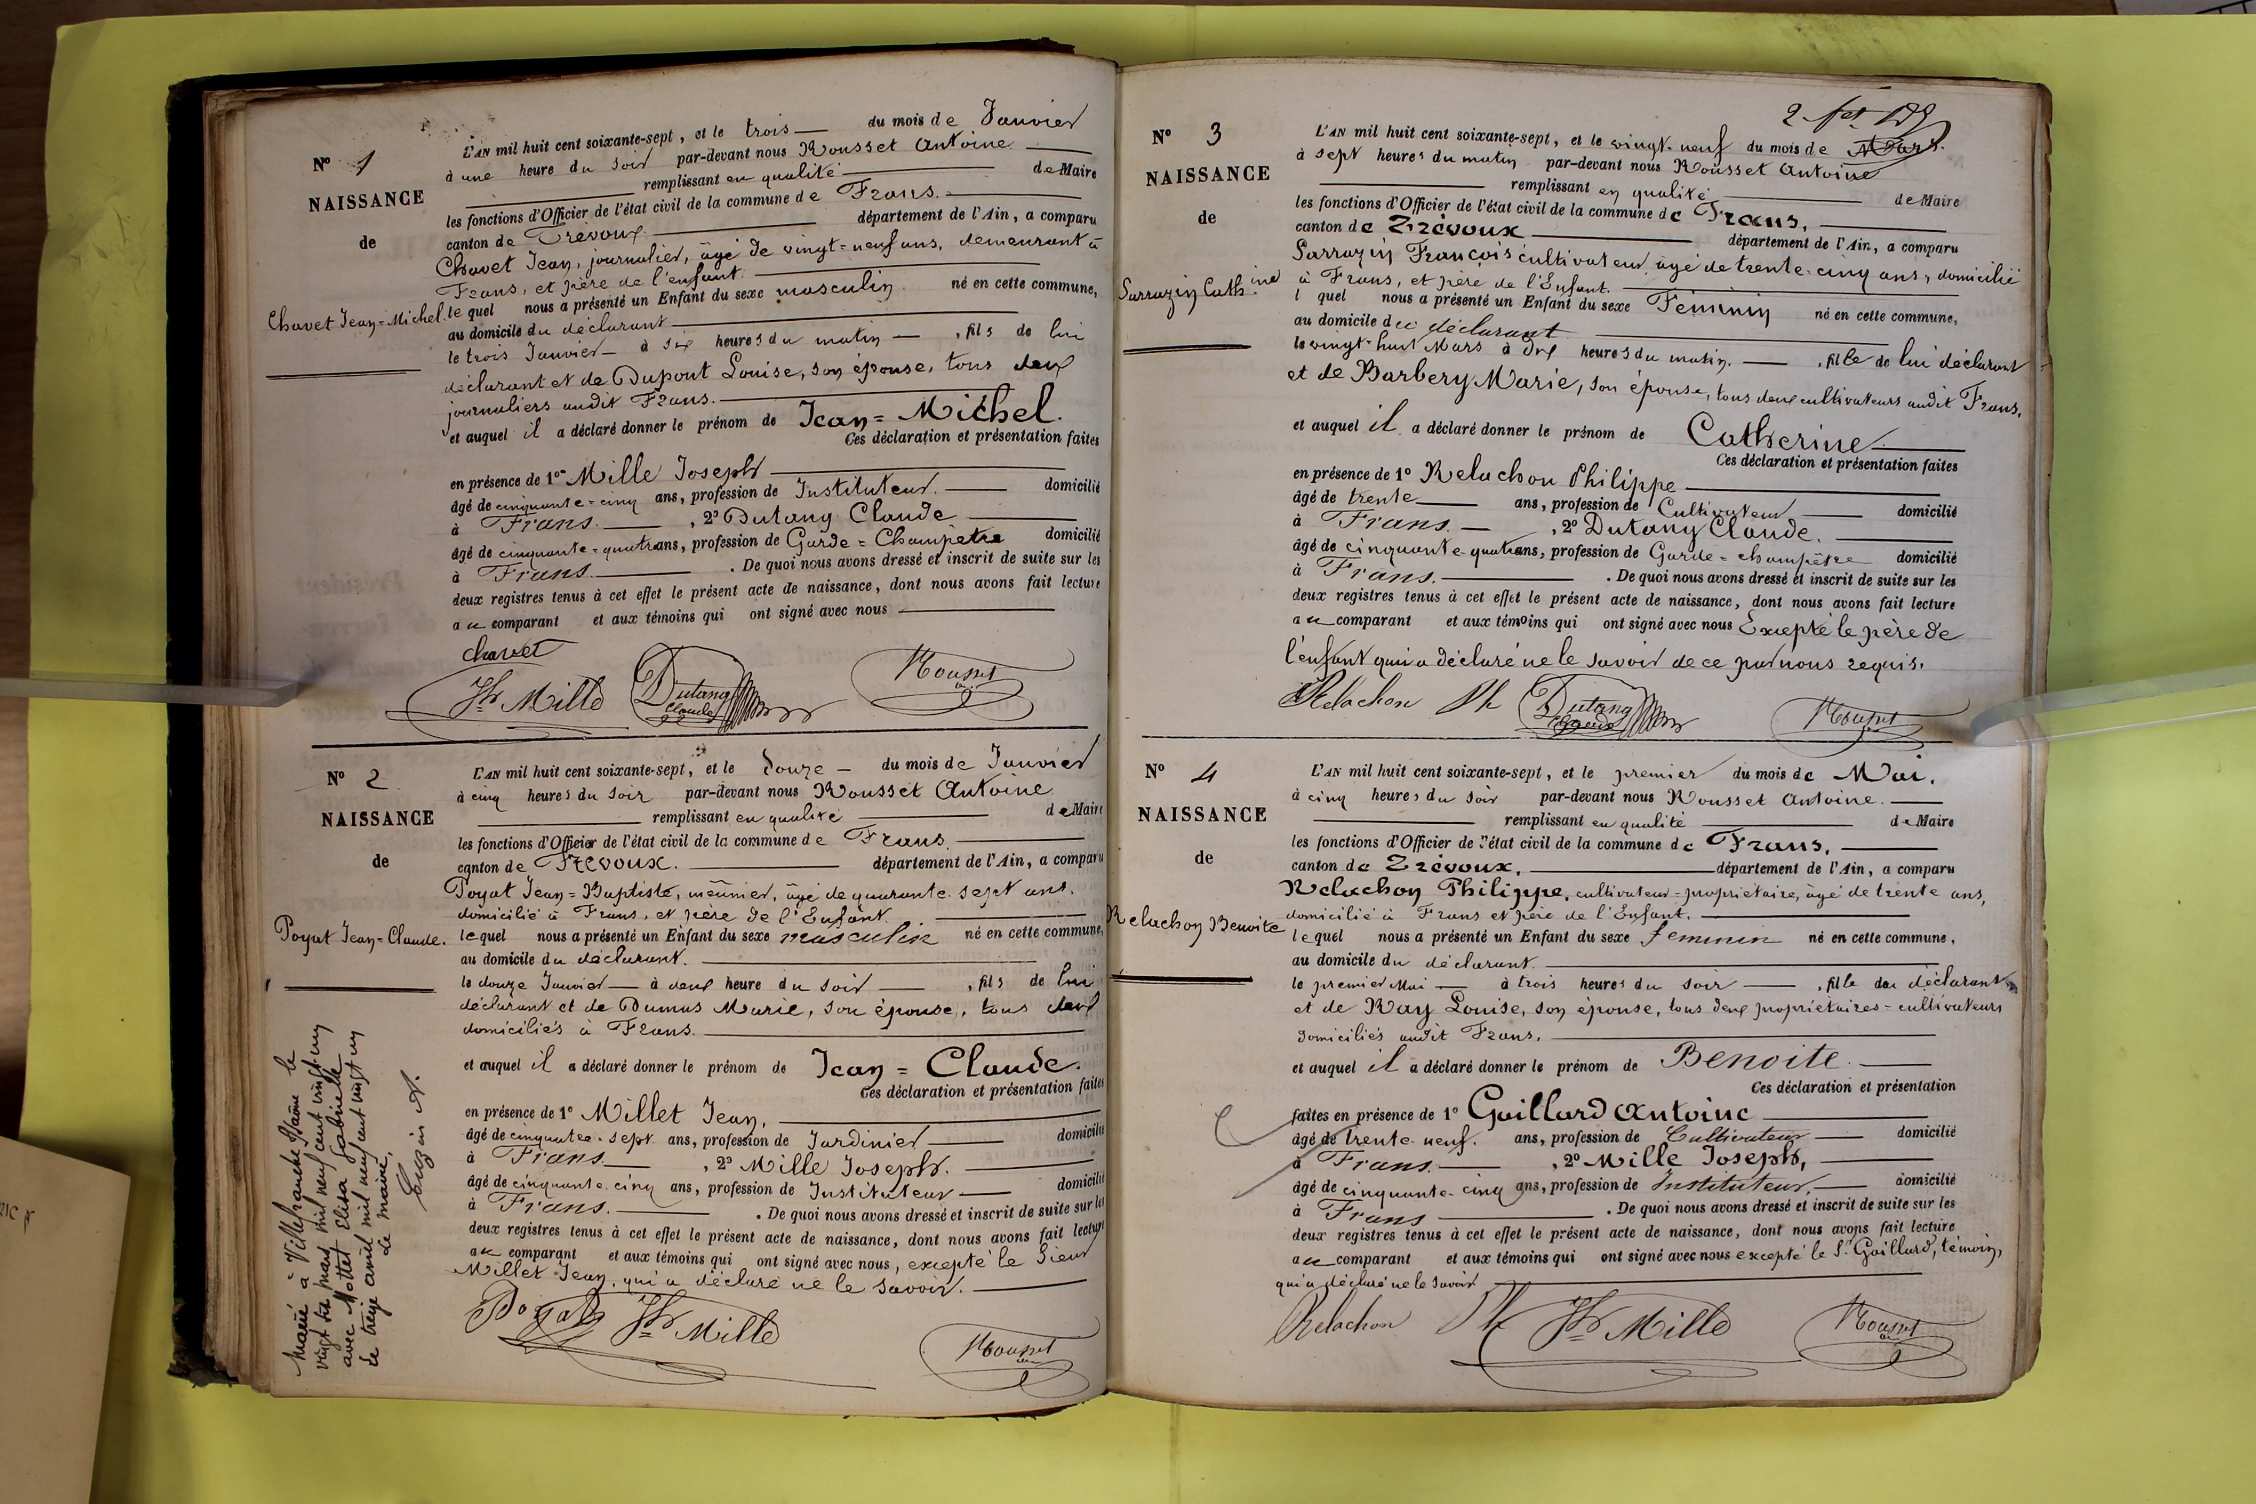 N° 1
NAISSANCE
de
Chavet Jean=Michel.
L'AN mil huit cent soixante-sept, et le trois — du mois de Janvier
à une heure du soir par-devant nous Rousset Antoine
remplissant en qualité de Maire
les fonctions d'Officier de l'état civil de la commune de Frans.
canton de Trévoux. département de l'Ain, a comparu
Chavet Jean, journalier, âgé de vingt=neuf ans, demeurant à
Frans, et père de l'enfant.
le quel nous a présenté un Enfant du sexe masculin né en cette commune,
au domicile du déclarant
le trois Janvier — à six heures du matin — , fils de lui
déclarant et de Dupont Louise, son épouse, tous deux
journaliers audit Frans.
et auquel il a déclaré donner le prénom de Jean=Michel.
Ces déclaration et présentation faites
en présence de 1° Mille Joseph
âgé de cinquante=cinq ans, profession de Instituteur. domicilié
à Frans. , 2° Dutang Claude
âgé de cinquante=quatre ans, profession de Garde=Champêtre domicilié
à Frans. . De quoi nous avons dressé et inscrit de suite sur les
deux registres tenus à cet effet le présent acte de naissance, dont nous avons fait lecture
au comparant et aux témoins qui ont signé avec nous
chavet
Jh Mille Dutang Claude Rousset
N° 2
NAISSANCE
de
Poyat Jean=Claude.
L'AN mil huit cent soixante-sept, et le douze — du mois de Janvier
à cinq heures du soir par-devant nous Rousset Antoine
remplissant en qualité de Maire
les fonctions d'Officier de l'état civil de la commune de Frans.
canton de Trévoux. département de l'Ain, a comparu
Poyat Jean=Baptiste, meûnier, âgé de quarante-sept ans.
domicilié à Frans, et père de l'Enfant.
le quel nous a présenté un Enfant du sexe masculin né en cette commune,
au domicile du déclarant.
le douze Janvier — à deux heure du soir — , fils de lui
déclarant et de Dumas Marie, son épouse, tous deux
domiciliés à Frans.
et auquel il a déclaré donner le prénom de Jean=Claude.
Ces déclaration et présentation faites
en présence de 1° Millet Jean,
âgé de cinquante-sept ans, profession de Jardinier domicilié
à Frans , 2° Mille Joseph.
âgé de cinquante-cinq ans, profession de Instituteur domicilié
à Frans. . De quoi nous avons dressé et inscrit de suite sur les
deux registres tenus à cet effet le présent acte de naissance, dont nous avons fait lecture
au comparant et aux témoins qui ont signé avec nous, excepté le Sieur
Millet Jean, qui a déclaré ne le savoir.
Poyat Jh Mille
Rousset
Marié à Villefranche Rhône le
vingt six mars mil neuf cent vingt un
avec Mottet Elisa Gabrielle
Le treize avril mil neuf cent vingt un
Le maire,
N° 3
NAISSANCE
de
Sarrazin Catherine
2 fév 179
L'AN mil huit cent soixante-sept, et le vingt-neuf du mois de Mars.
à sept heures du matin par-devant nous Rousset Antoine
remplissant en qualité de Maire
les fonctions d'Officier de l'état civil de la commune de Frans,
canton de Trévoux département de l'Ain, a comparu
Sarrazin François cultivateur, âgé de trente-cinq ans, domicilié
à Frans, et père de l'Enfant.
l quel nous a présenté un Enfant du sexe Féminin né en cette commune,
au domicile du déclarant
le vingt-huit Mars à dix heures du matin. — , fille de lui déclarant
et de Barbery Marie, son épouse, tous deux cultivateurs audit Frans,
et auquel il a déclaré donner le prénom de Catherine
Ces déclaration et présentation faites
en présence de 1° Relachon Philippe
âgé de trente ans, profession de Cultivateur domicilié
à Frans. , 2° Dutang Claude.
âgé de cinquante-quatre ans, profession de Garde=champêtre domicilié
à Frans. . De quoi nous avons dressé et inscrit de suite sur les
deux registres tenus à cet effet le présent acte de naissance, dont nous avons fait lecture
au comparant et aux témoins qui ont signé avec nous Excepté le père de
l'enfant qui a déclaré ne le savoir de ce par nous requis.
Relachon Ph Dutang Claude Rousset
N° 4
NAISSANCE
de
Relachon Benoite
L'AN mil huit cent soixante-sept, et le premier du mois de Mai.
à cinq heures du soir par-devant nous Rousset Antoine.
remplissant en qualité de Maire
les fonctions d'Officier de l'état civil de la commune de Frans.
canton de Trévoux. département de l'Ain, a comparu
Relachon Philippe, cultivateur=propriétaire, âgé de trente ans,
domicilié à Frans et père de l'Enfant.
le quel nous a présenté un Enfant du sexe feminin né en cette commune,
au domicile du déclarant.
le premier Mai — à trois heures du soir — , fille du déclarant
et de Ray Louise, son épouse, tous deux propriétaires=cultivateurs
domiciliés audit Frans.
et auquel il a déclaré donner le prénom de Benoite.
Ces déclaration et présentation
faites en présence de 1° Gaillard Antoine
âgé de trente-neuf. ans, profession de Cultivateur domicilié
à Frans. , 2° Mille Joseph,
âgé de cinquante-cinq ans, profession de Instituteur, domicilié
à Frans . De quoi nous avons dressé et inscrit de suite sur les
deux registres tenus à cet effet le présent acte de naissance, dont nous avons fait lecture
au comparant et aux témoins qui ont signé avec nous excepté le Sr Gaillard, témoin,
qui a déclaré ne le savoir
Relachon Ph Jh Mille Rousset